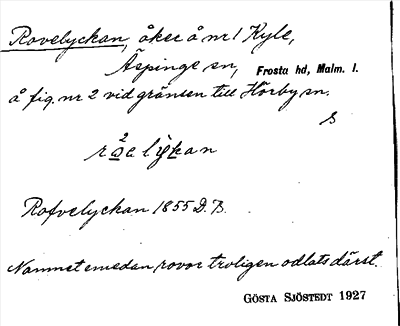 Rovelyckan, åker å nr 1 Kyle,
Äspinge sn, Frosta hd, Malm. l.
å fig. nr 2 vid gränsen till Hörby sn.
Rofvelyckan 1855 D. B.
Namnet emedan rovor troligen odlats därst.
GÖSTA SJÖSTEDT 1927